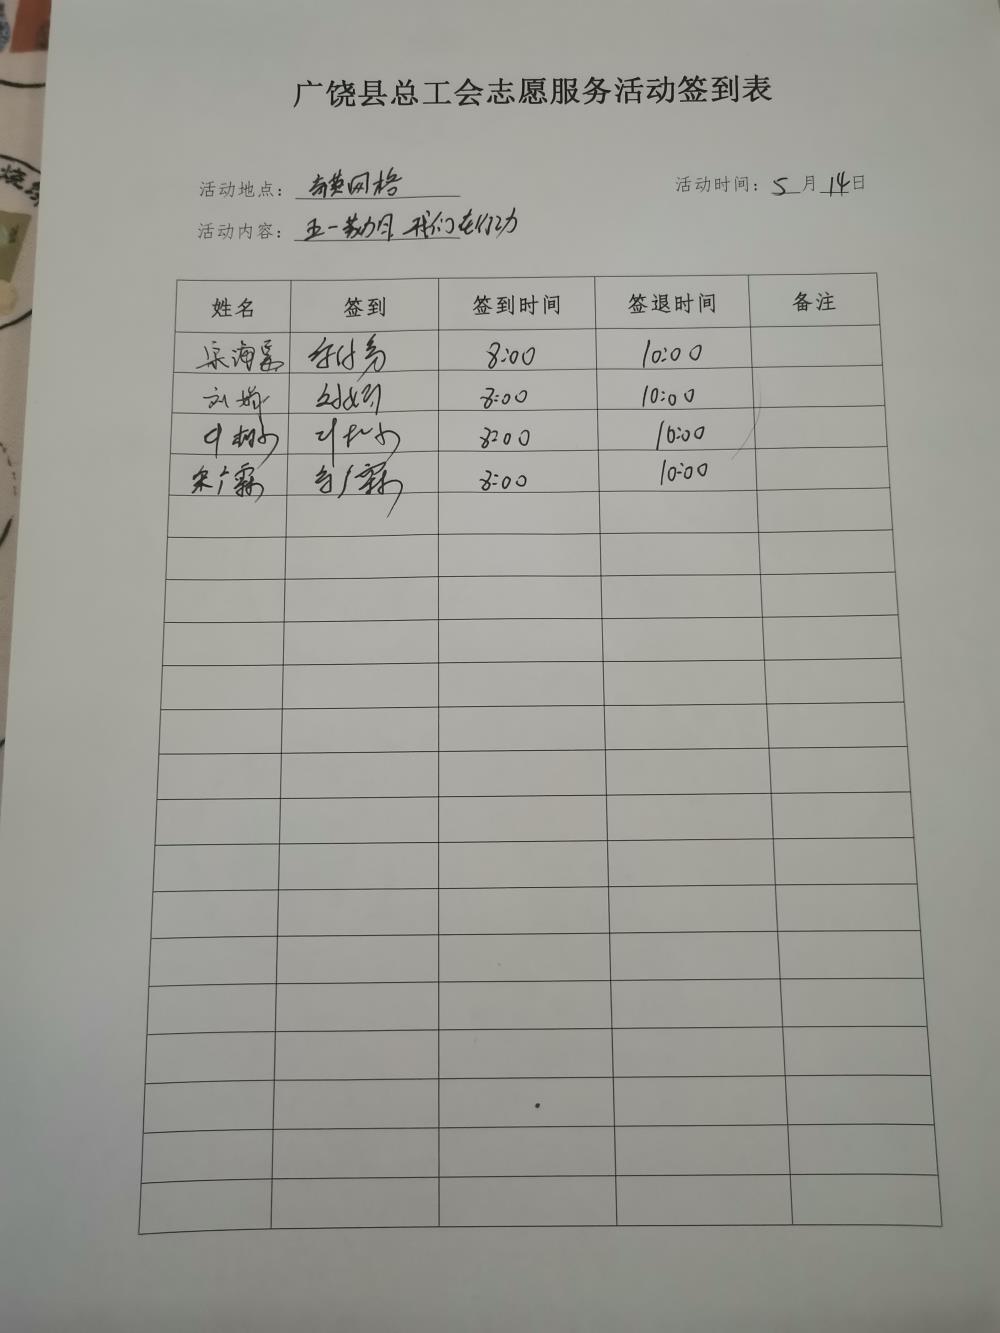 广饶县总工会志愿服务活动签到表
活动地点: 网格 活动时间: 5月14日
活动内容: 五一 我们在行动
姓名 签到 签到时间 签退时间 备注
宗海 8:00 10:00
刘 8:00 10:00
8:00 10:00
宋广霖 宋广霖 8:00 10:00